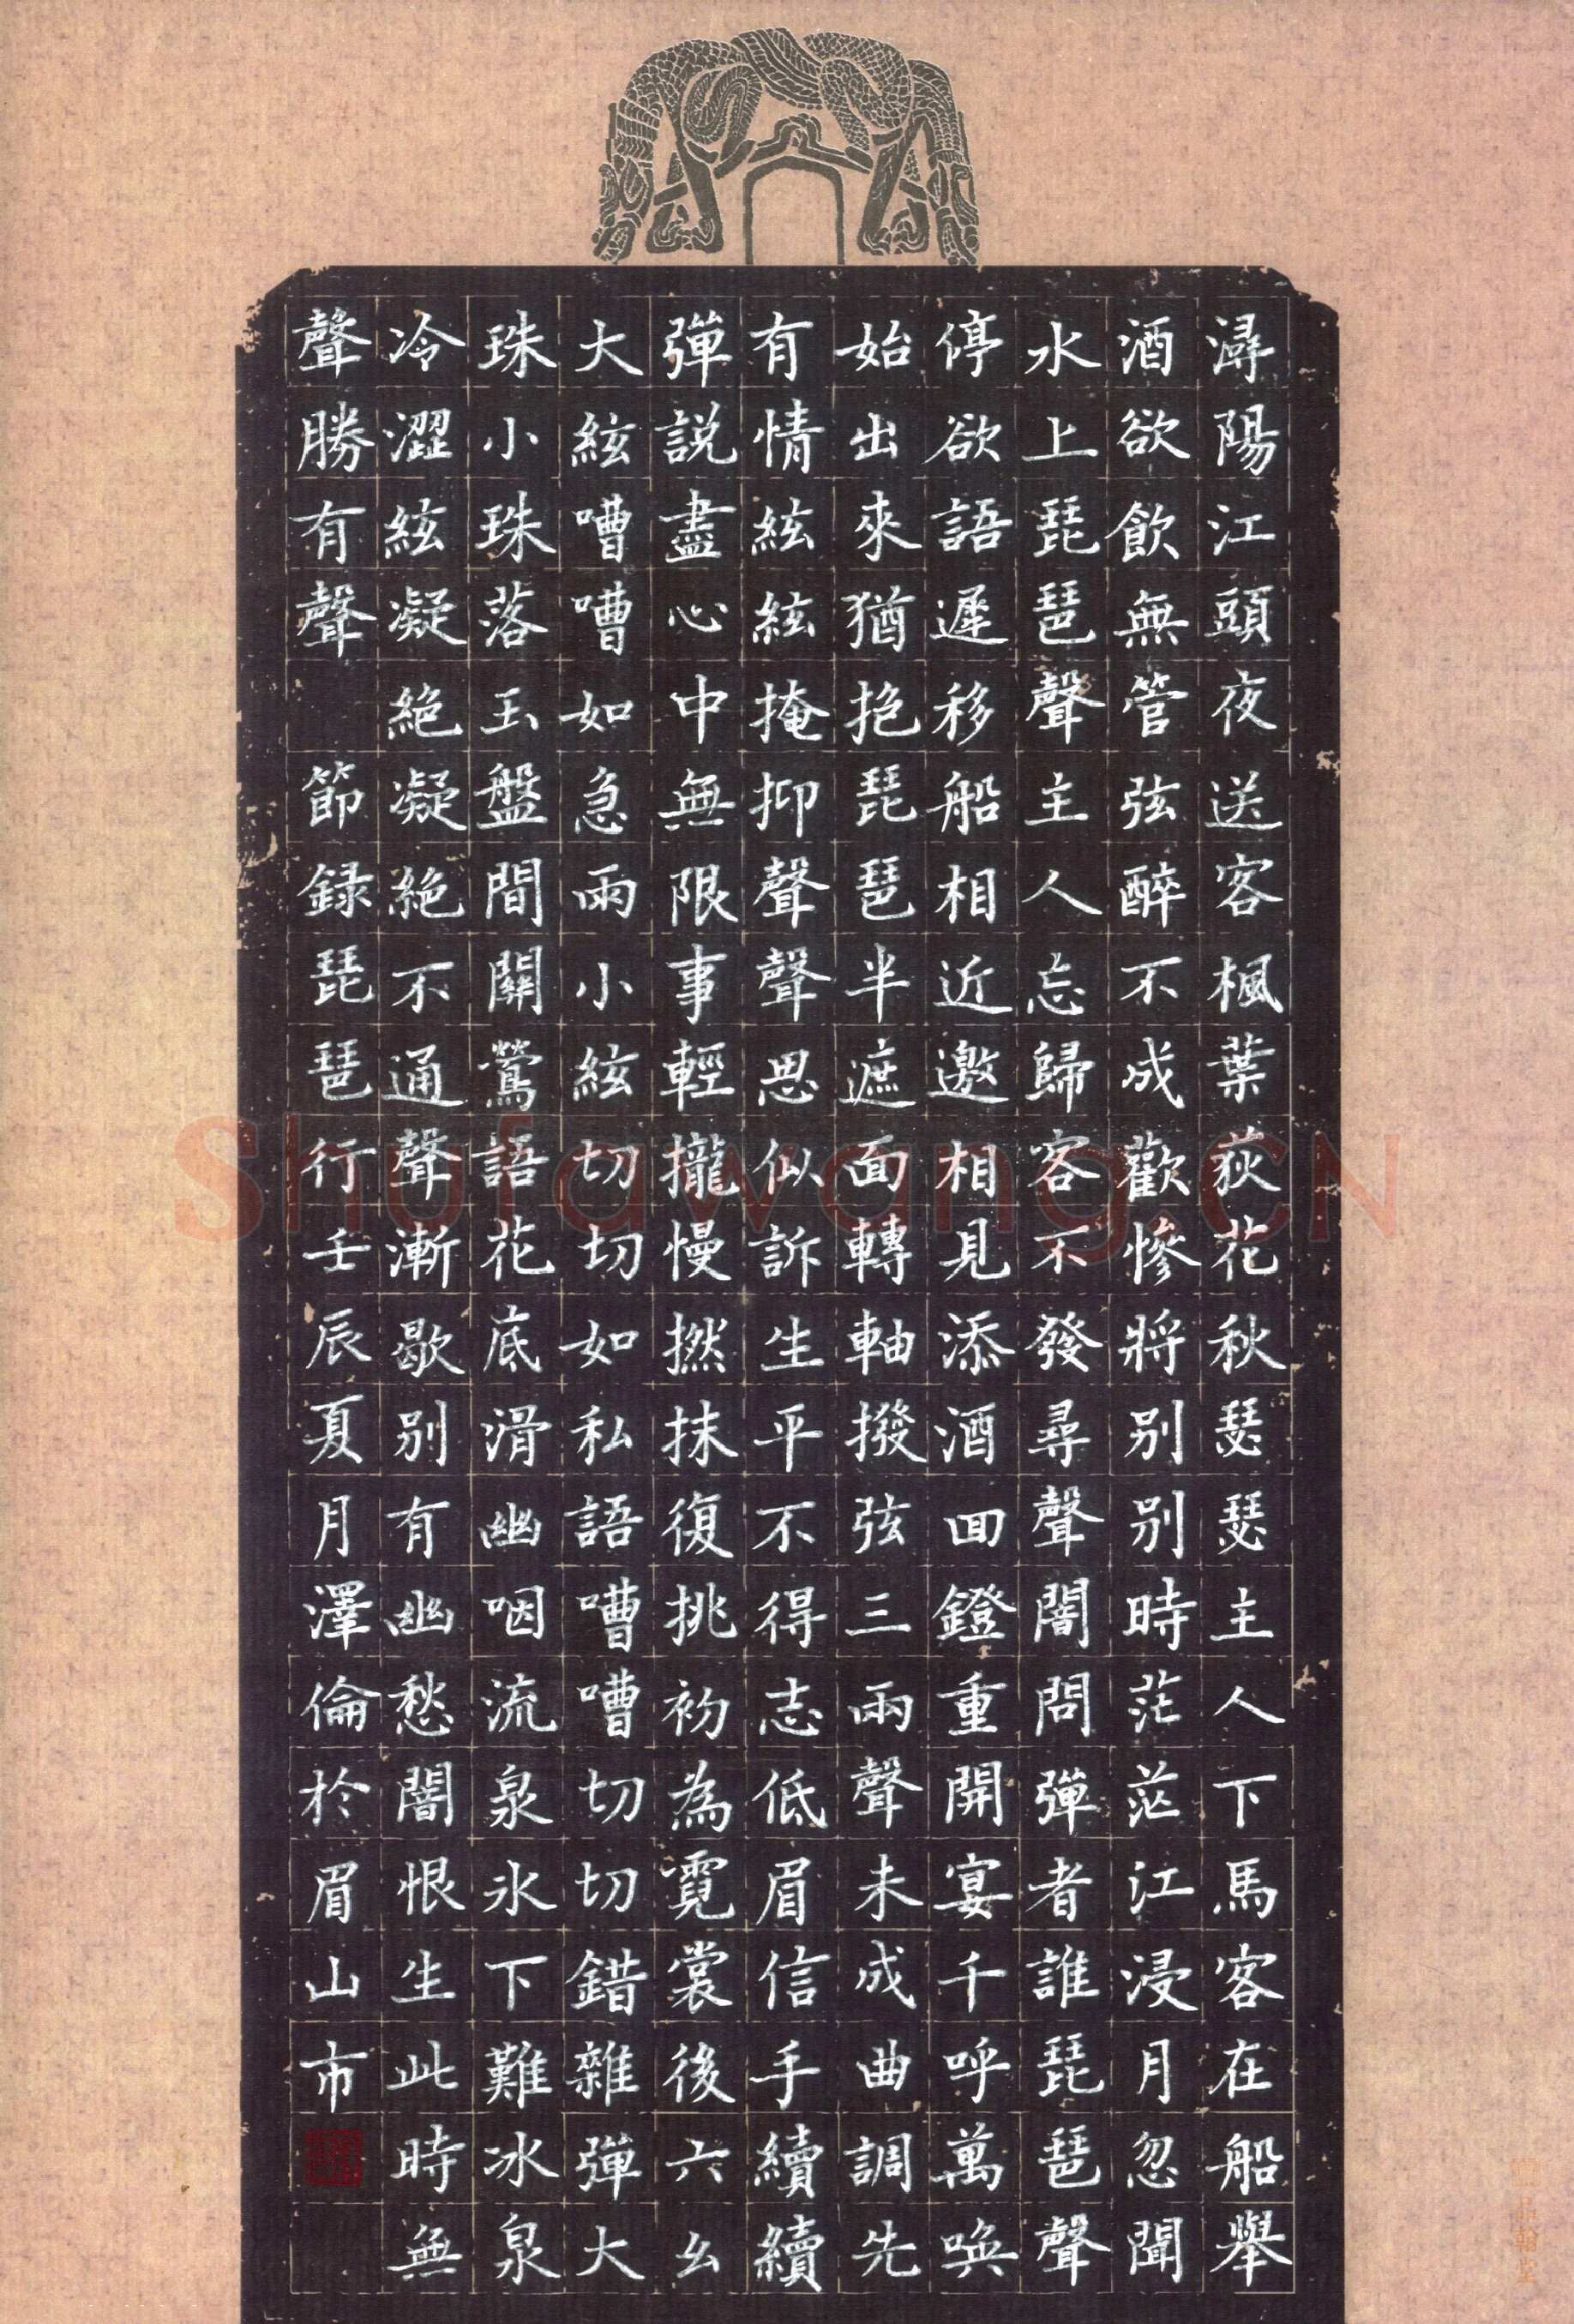 潯陽江頭夜送客楓葉荻花秋瑟瑟主人下馬客在船舉
酒欲飲無管弦醉不成歡慘將別別時茫茫江浸月忽聞
水上琵琶聲主人忘歸客不發尋聲闇問彈者誰琵琶聲
停欲語遲移船相近邀相見添酒回鐙重開宴千呼萬喚
始出來猶抱琵琶半遮面轉軸撥弦三兩聲未成曲調先
有情絃絃掩抑聲聲思似訴生平不得志低眉信手續續
彈說盡心中無限事輕攏慢撚抹復挑初為霓裳後六幺
大絃嘈嘈如急雨小絃切切如私語嘈嘈切切錯雜彈大
珠小珠落玉盤間關鶯語花底滑幽咽流泉水下難冰泉
冷澀絃凝絕凝絕不通聲漸歇別有幽愁闇恨生此時無
聲勝有聲 節録琵琶行壬辰夏月澤倫於眉山市
Shufawang.CN